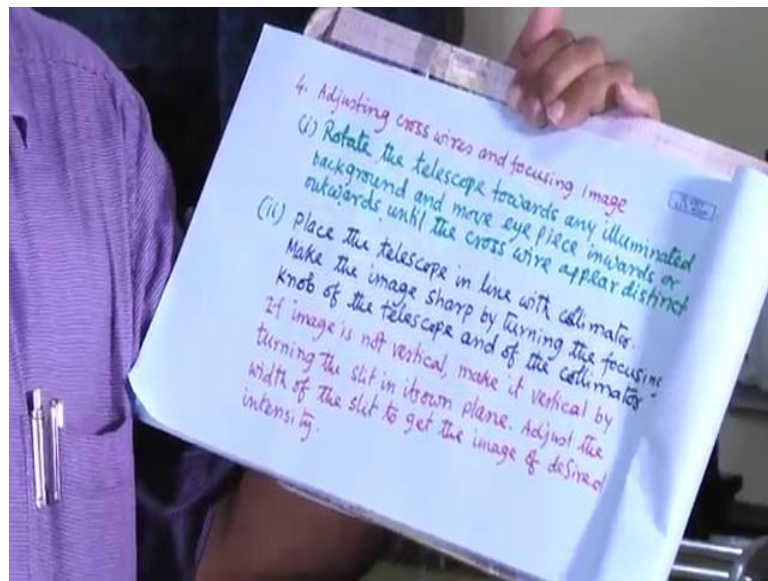 4. Adjusting cross wires and focusing Image
(i) Rotate the telescope towards any illuminated
background and move eye piece inwards or
outwards, until the cross wire appear distinct
(ii) Place the telescope in line with collimator.
Make the image sharp by turning the focusing
knob of the telescope and of the collimator.
If image is not vertical, make it vertical by
turning the slit in its own plane. Adjust the
width of the slit to get the image of desired
intensity.